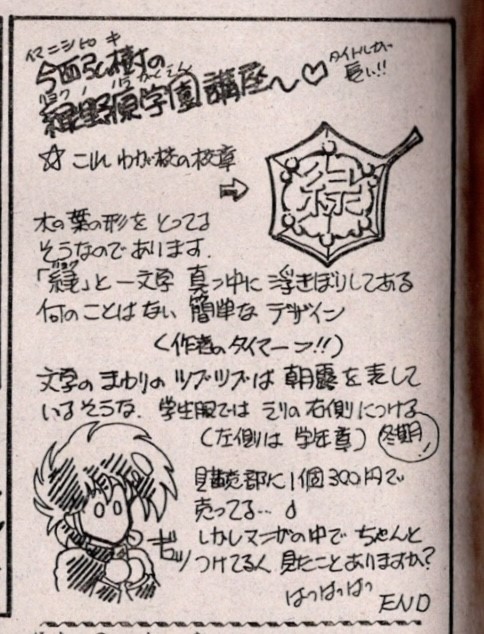 イマニシヒロキ
今西弘樹の
リョクノハラがくえん
緑野原学園講座〜♡
タイトルが
長い!!
☆これ わが校の校章
⇨
緑
木の葉の形を とってる
そうなのであります.
「緑」と一文字 真ッ中に 浮きぼりしてある
何のことはない 簡単な デザイン
(作者のタイマーン!!)
文字の まわりの ツブツブは 朝露を 表して
いるそうな. 学生服では えりの右側につける
(左側は 学年章) 冬期!
購売部に1個300円で
売ってる…
しかしマンガの中で ちゃんと
つけてる人 見たことありますか?
ギクッ
はっはっはっ
END